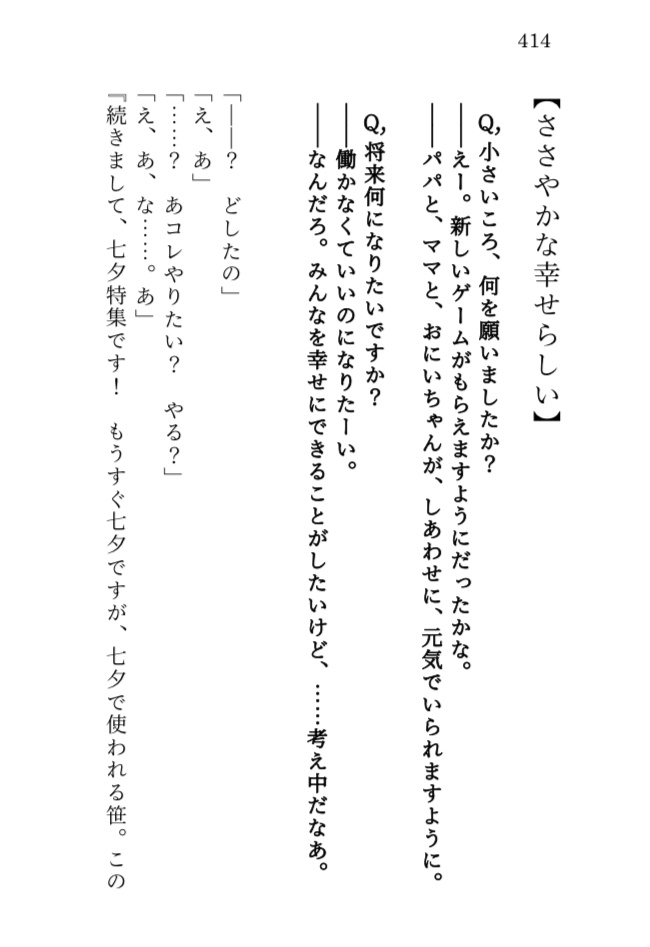 414
【ささやかな幸せらしい】
Q,小さいころ、何を願いましたか?
――えー。新しいゲームがもらえますようにだったかな。
――パパと、ママと、おにいちゃんが、しあわせに、元気でいられますように。
Q,将来何になりたいですか?
――働かなくていいのになりたーい。
――なんだろ。みんなを幸せにできることがしたいけど、……考え中だなあ。
「――? どしたの」
「え、あ」
「……? あコレやりたい? やる?」
「え、あ、な……。あ」
『続きまして、七夕特集です! もうすぐ七夕ですが、七夕で使われる笹。この